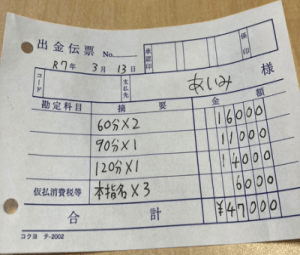 出金伝票 No.
承認印 係印
R7年 3月 13日
コード 支払先 あいみ 様
勘定科目 摘要 金額
60分×2 16000
90分×1 11000
120分×1 14000
仮払消費税等 本指名×3 6000
合計 ¥47000
コクヨ テ-2002